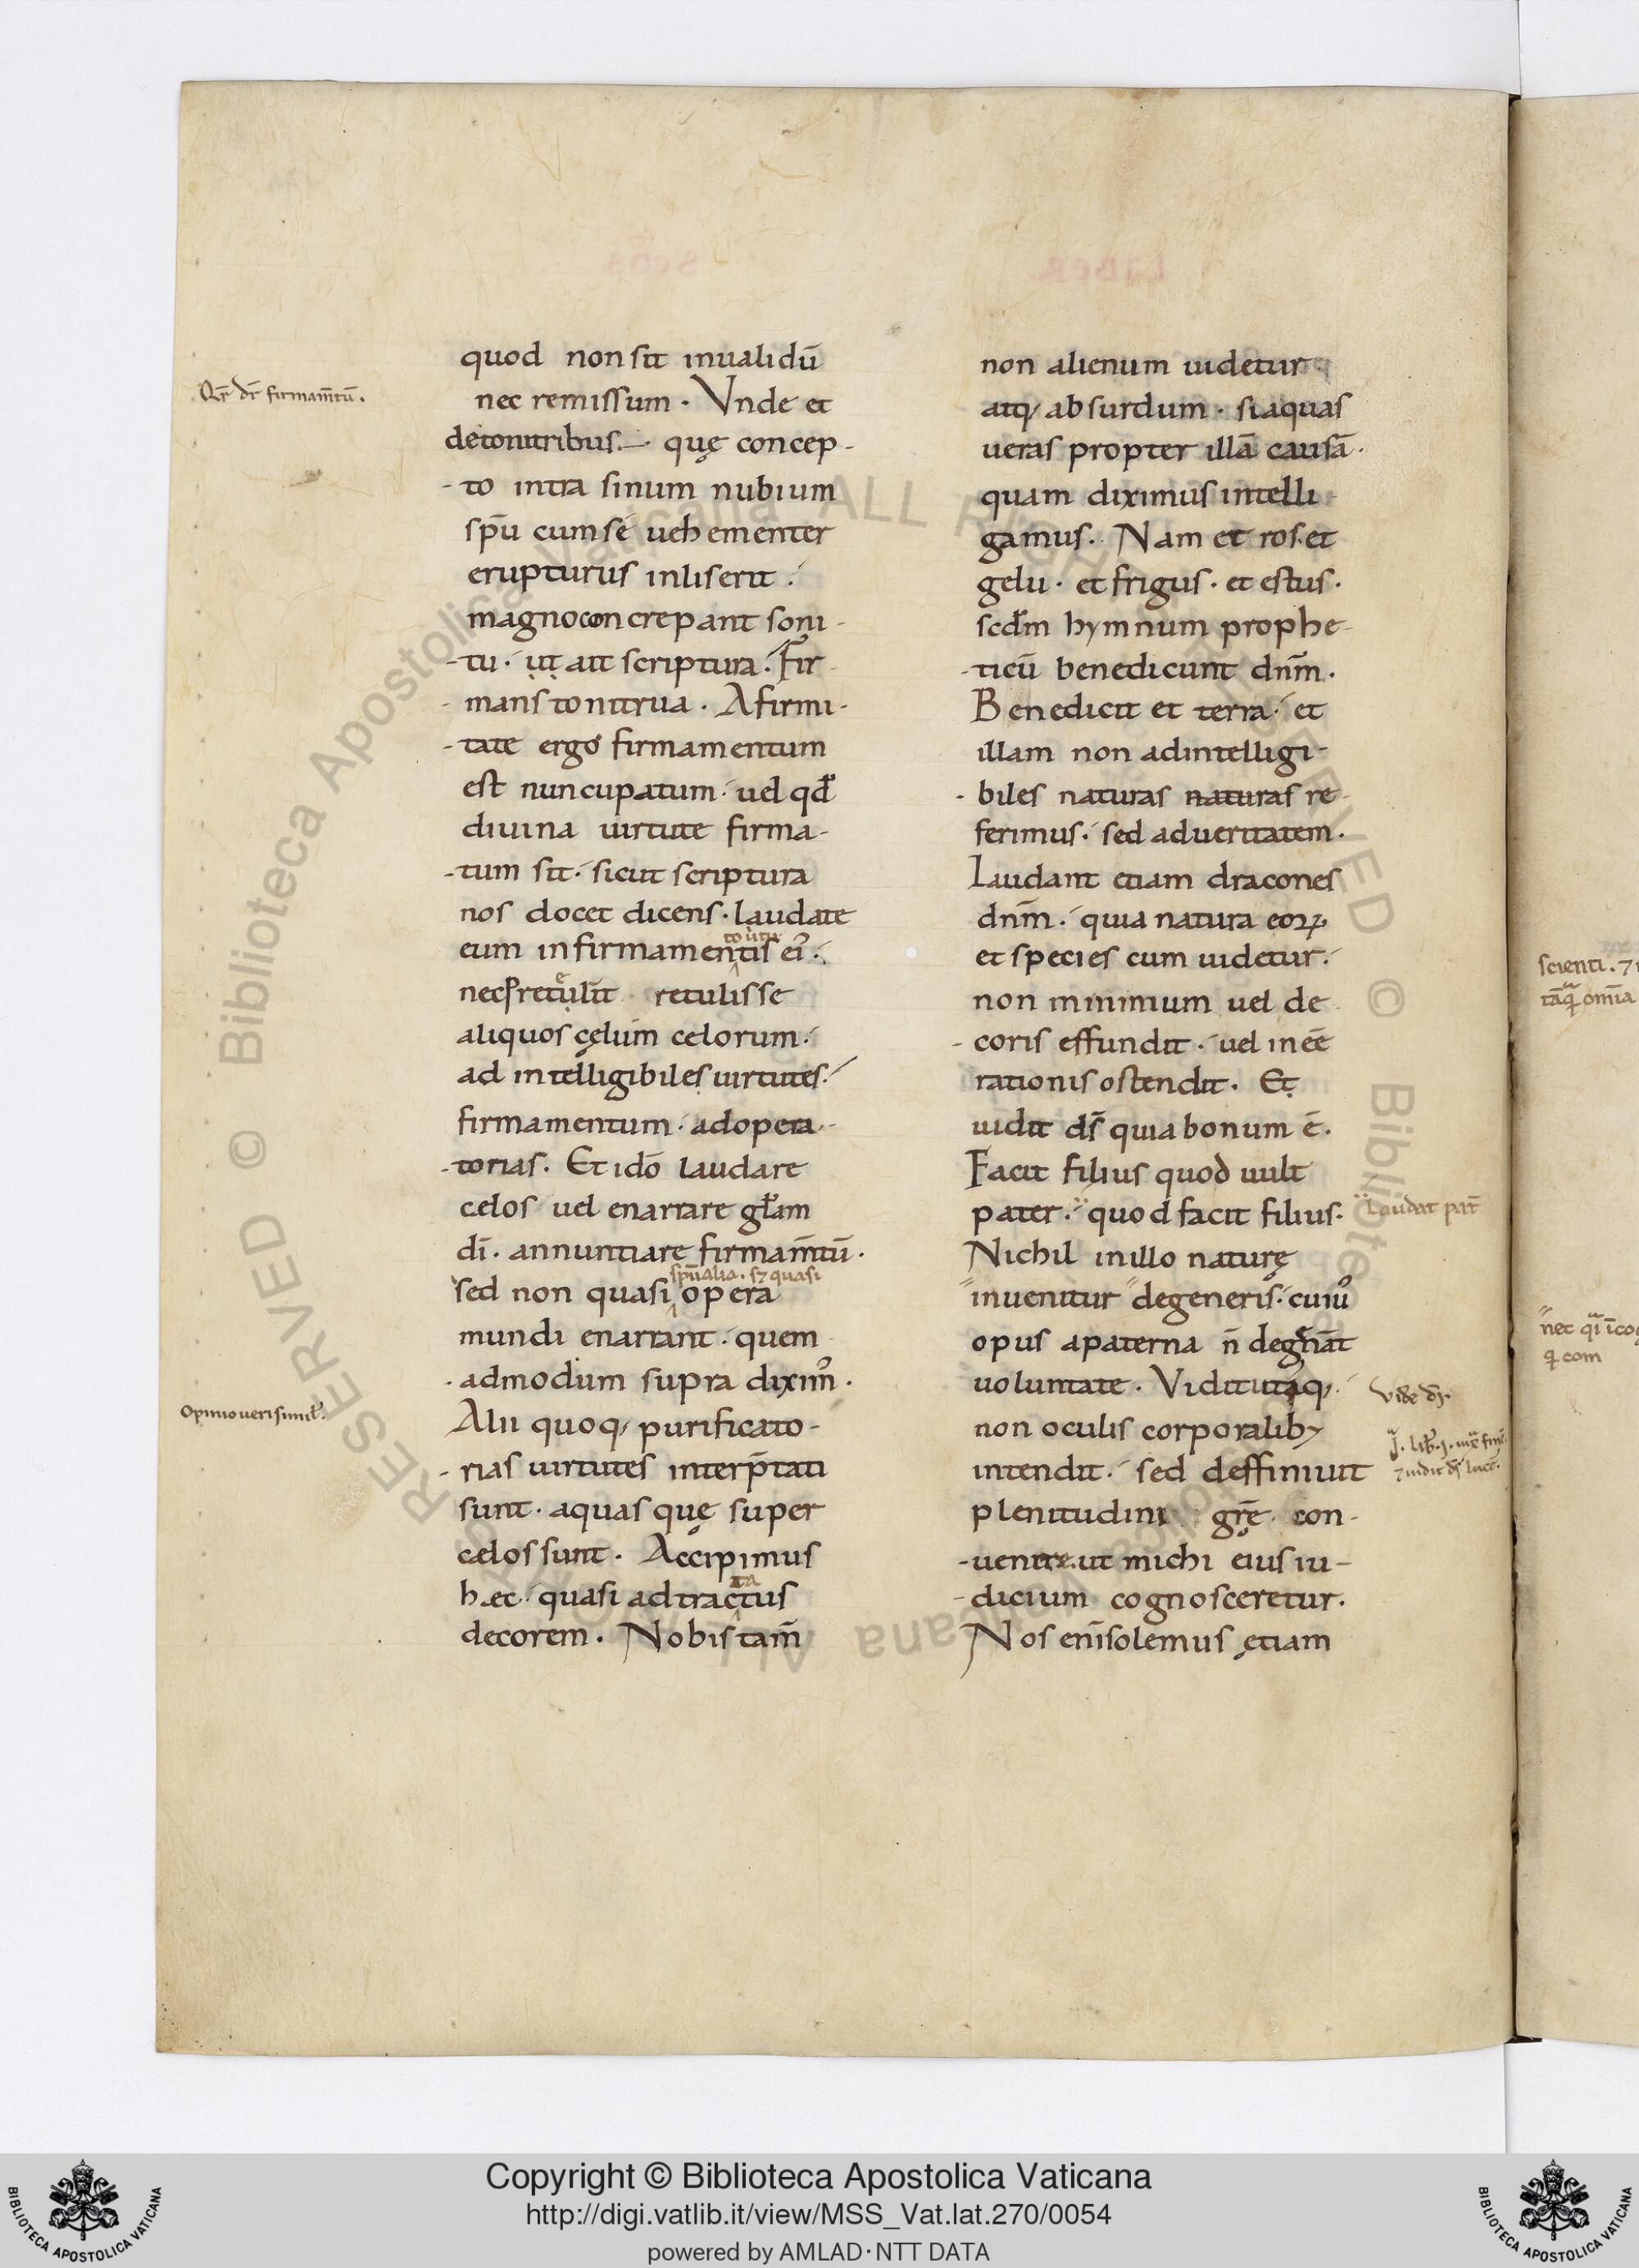 Qr̄ dr̄ firmam̄tū.
quod non sit inualidū
nec remissum. Vnde et
detonitribus. quę concep-
-to intra sinum nubium
sp̄u cumse uehementer
erupturus inliserit.
magnoconcrepant soni-
-tu. ut ait scriptura. Fir-
-mans tonitrua. Afirmi-
-tate ergo firmamentum
est nuncupatum. uel qđ
diuina uirtute firma-
-tum sit. sicut scriptura
nos docet dicens. laudate
eum infirmamentis ei᾿.
retulisse
aliquos cęlum celorum.
ad intelligibiles uirtutes.
firmamentum. adopera-
-torias. Et idō laudare
celos uel enarrare gła̅m
dī. annuntiare firmam̄tū.
sp̄ualia. sꝫ quasi
sed non quasi opera
mundi enarrant. quem-
-admodum supra dixim᾿.
Opinio uerisimil'.
Alii quoq; purificato-
-rias uirtutes interp̄tati
sunt. aquas quę super
cælos sunt. Accipimus
hæc. quasi ad tractus
decorem. Nobis tam̄
non alienum uidetur
atq; absurdum. si aquas
ueras propter illā causā.
quam diximus intelli-
gamus. Nam et ros. et
gelu. et frigus. et estus.
scd̄m hymnum prophe-
-ticū benedicunt dn̄m.
Benedicit et terra. et
illam non adintelligi-
-biles naturas naturas re-
ferimus. sed adueritatem.
Laudant etiam dracones
dn̄m. quia natura eoꝝ
et species cum uidetur.
non minimum uel de-
-coris effundit. uel in eē
rationis ostendit. Et
uidit ds̄ quia bonum ē.
Facit filius quod uult
pater. quod facit filius. Laudat pat̄
Nichil inillo naturę
inuenitur degeneris. cuiu᾿
opus apaterna n̄ degn̄at
uoluntate. Vidit utiq;.
non oculis corporalibꝫ
intendit. sed deffiniuit
plenitudini gr̄ę con-
-uenire. ut michi eius iu-
-dicium cognosceretur.
Nos enīsolemus ętiam